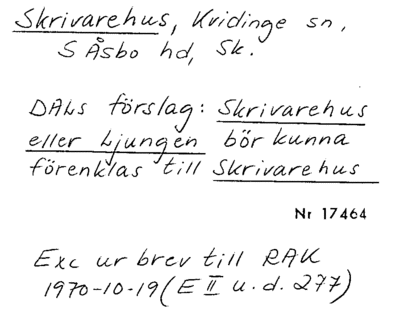 Skrivarehus, Kvidinge sn,
S Åsbo hd, Sk.
DALs förslag: Skrivarehus
eller Ljungen bör kunna
förenklas till Skrivarehus
Nr 17464
Exc ur brev till RAK
1970-10-19 (E II u. d. 277)